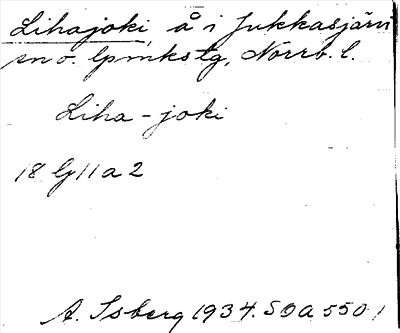 Lihajoki, å i Jukkasjärvi
sn o. lpmkstg, Norrb. l.
Liha-joki
18 Gj 11 a 2
A. Isberg 1934. SOA 550 1